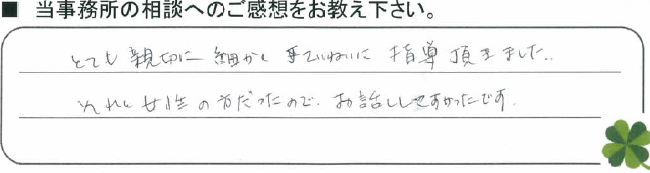 ■ 当事務所の相談へのご感想をお教え下さい。
とても親切に細かく手ていねいに指導頂きました。
それと女性の方だったので、お話ししやすかったです。